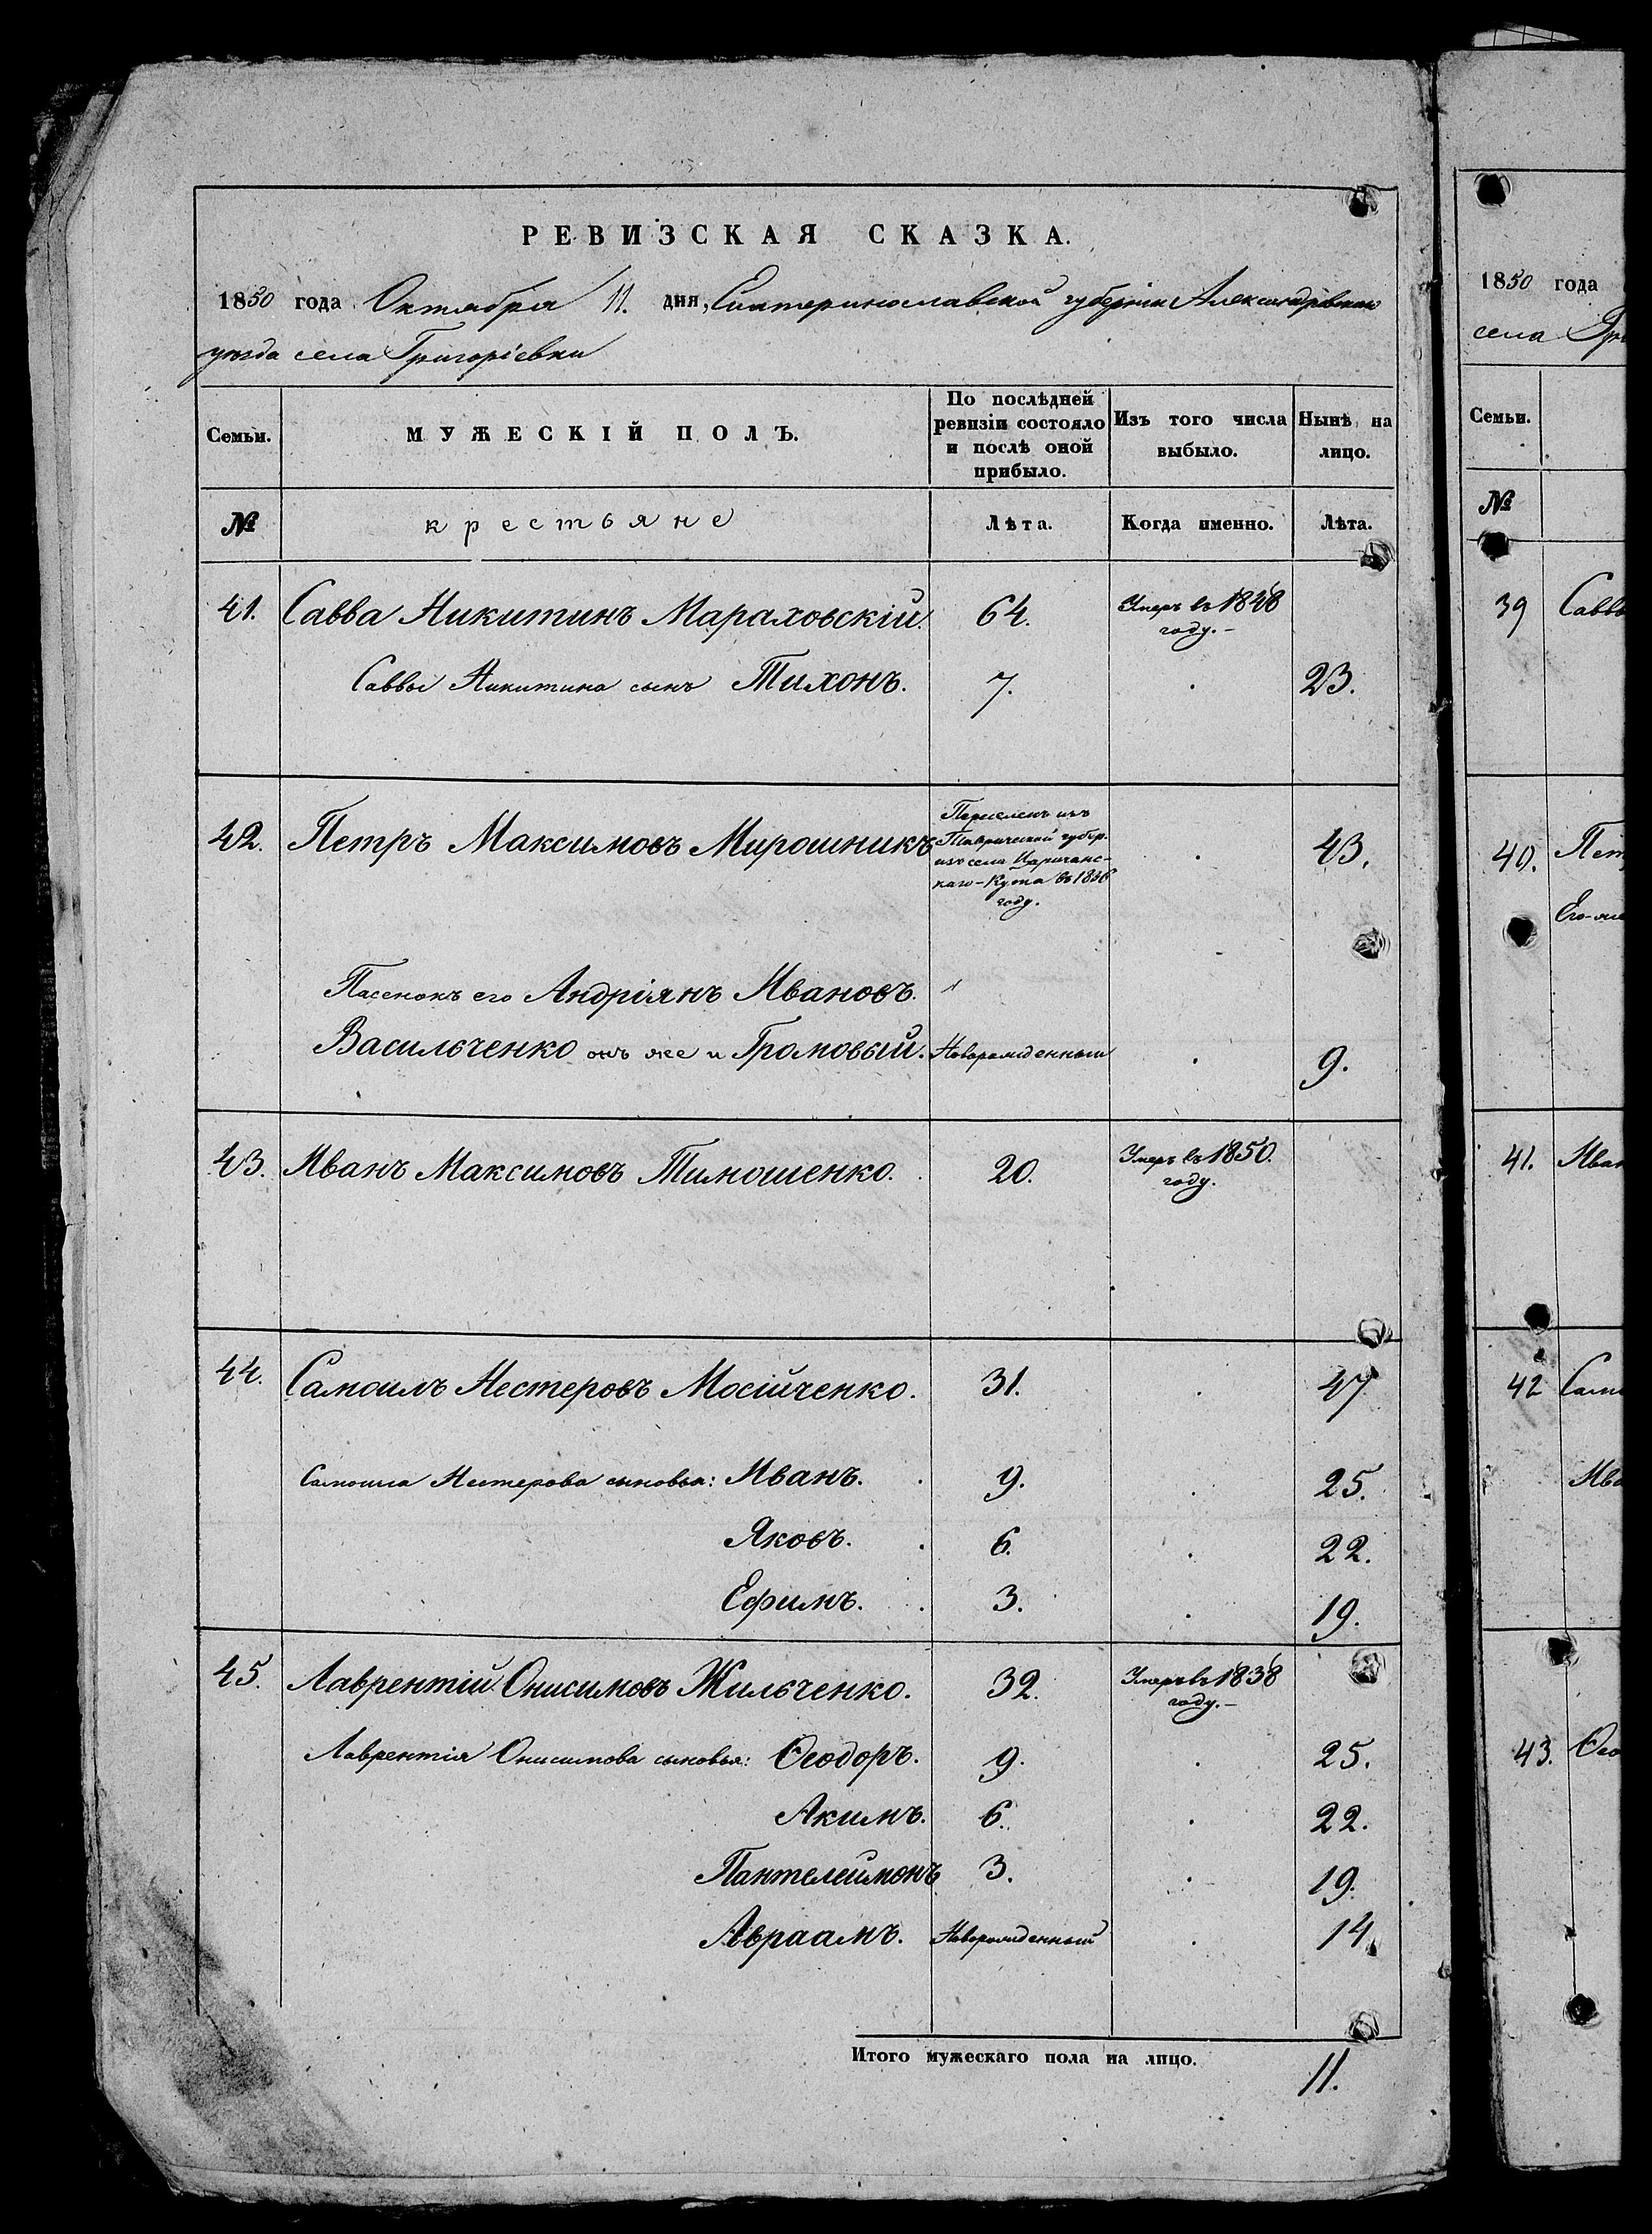 РЕВИЗСКАЯ СКАЗКА.
1850 года Октября 11. дня, Екатеринославской губернии Александровскаго
уезда села Григоріевки
Семьи.
МУЖЕСКІЙ ПОЛЪ.
По послѣдней
ревизіи состояло
и послѣ оной
прибыло.
Изъ того числа
выбыло.
Нынѣ на
лицо.
№ крестьяне Лѣта. Когда именно. Лѣта.
41. Савва Никитинъ Мараховскій. 64. Умеръ въ 1848
году.-
Саввы Никитина сынъ Тихонъ. 7. 23.
42. Петръ Максимовъ Мирошникъ 43.
Переселенъ изъ
Таврической губер.
изъ села Царичанс-
каго-Кута въ 1836
году.
Пасенокъ его Андріянъ Ивановъ.
Васильченко онъ же и Громовый. Новорожденный 9.
43. Иванъ Максимовъ Тимошенко. 20. Умеръ въ 1850.
году.
44. Самоилъ Нестеровъ Мосійченко. 31. 47
Самоила Нестерова сыновья: Иванъ. 9. 25.
Яковъ. 6. 22.
Ефимъ. 3. 19.
45. Лаврентій Онисимовъ Жильченко. 32. Умеръ въ 1838
году.-
Лаврентія Онисимова сыновья: Ѳеодоръ. 9. 25.
Акимъ. 6. 22.
Пантелеймонъ 3. 19.
Авраамъ. Новорожденный 14.
Итого мужескаго пола на лицо. 11.
1850 года
села
Семьи.
№
39 Савв
40. Пет
Его же
41. Иван
42 Само
Ива
43. Ѳео